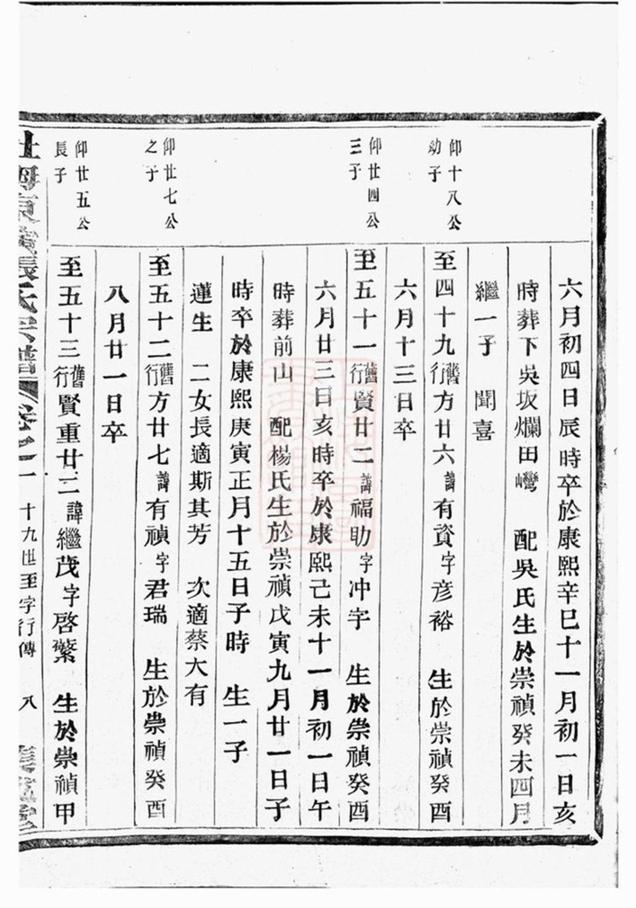 六月初四日辰時卒於康熙辛巳十一月初一日亥
時葬下吳坂爛田灣 配吳氏生於崇禎癸未四月
繼一子 聞喜
仰十八公
幼子
至四十九舊行方廿六諱有資字彥裕 生於崇禎癸酉
六月十三日卒
仰廿四公
三子
至五十一舊行賢廿二諱福助字冲字 生於崇禎癸酉
六月廿三日亥時卒於康熙己未十一月初一日午
時葬前山 配楊氏生於崇禎戊寅九月廿一日子
時卒於康熙庚寅正月十五日子時 生一子
蓮生 二女長適斯其芳 次適蔡大有
仰廿七公
之子
至五十二舊行方廿七諱有禎字君瑞 生於崇禎癸酉
八月廿一日卒
仰廿五公
長子
至五十三舊行賢重廿三諱繼茂字啓縈 生於崇禎甲
張氏宗譜 卷之 十九世至字行傳 八